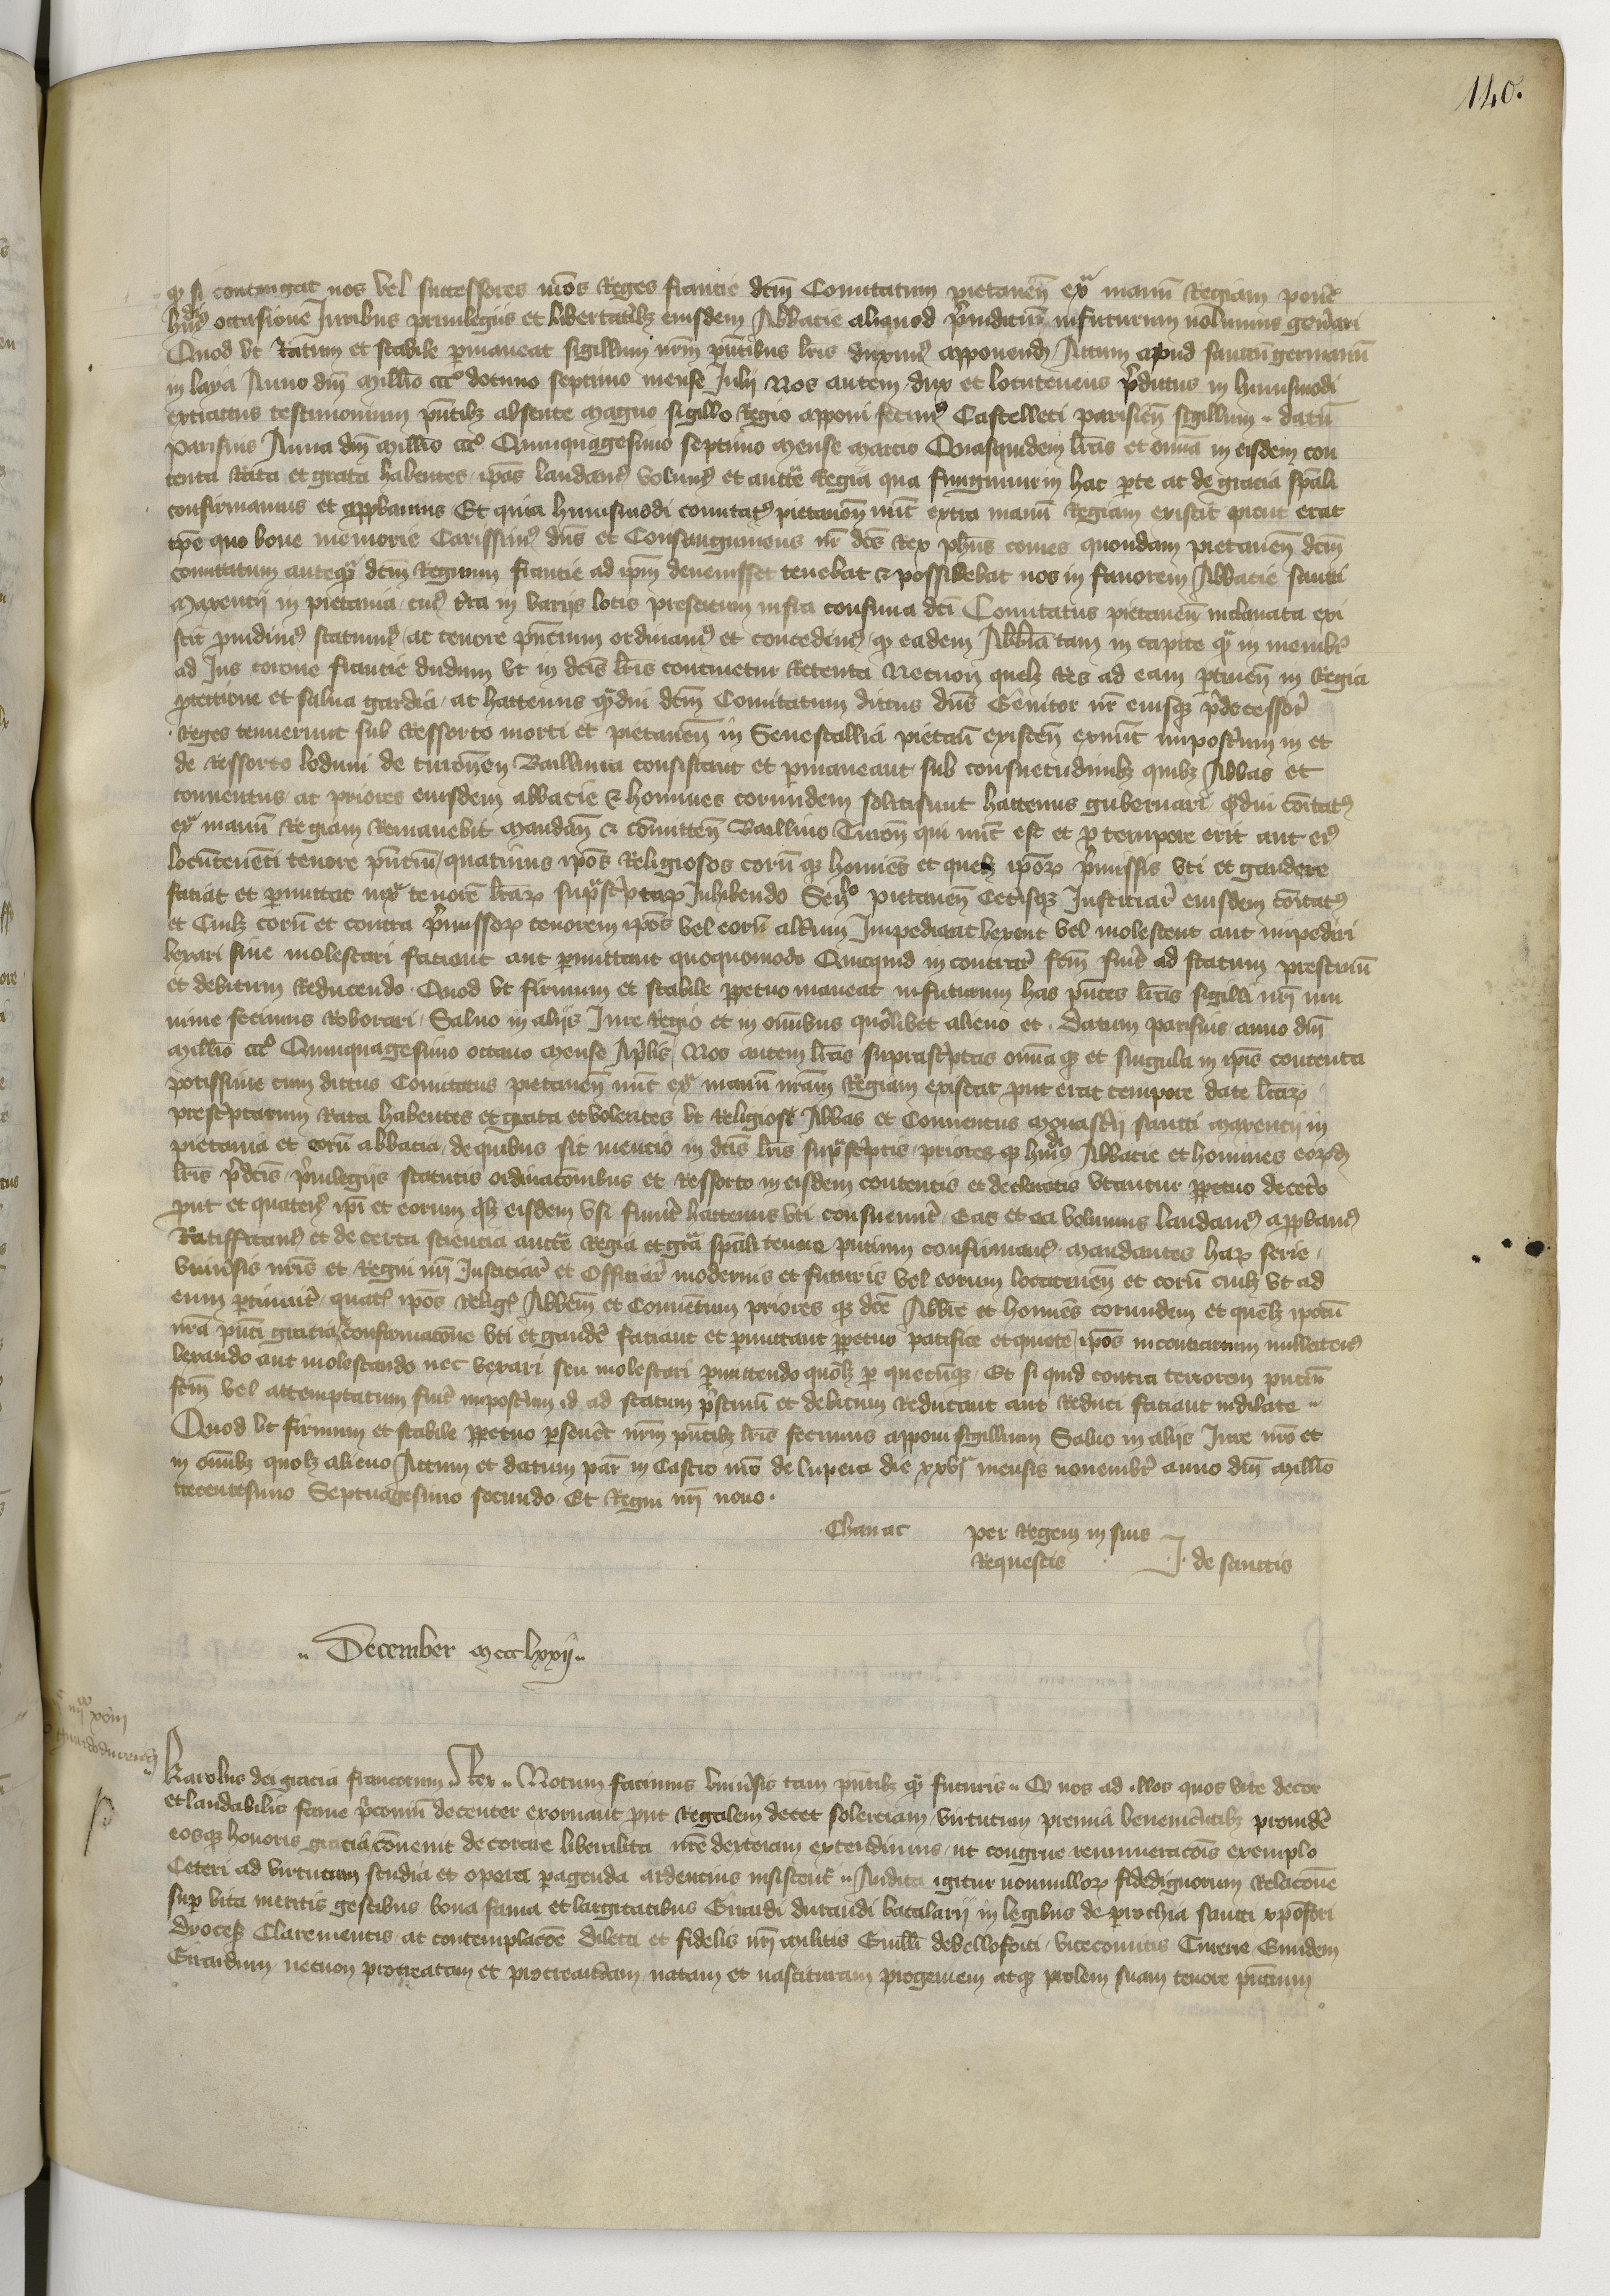 140.
q si contingat nos vel successores nros Reges francie dcm Comitatum pictaven ex manu Regiam pone
huiusmodi occasione Juribus privilegiis et libertatibz eiusdem Abbacie aliquod preiudicium infuturum nolumus generari
Quod ut Ratum et stabile pmaneat sigillum nrm pntibus lris duximus apponend Actum apud sanctu germanu
in laya Anno dni millio ccco decimo septimo mense Julii Nos autem dux et locutenens pdictus in huiusmodi
exhicitus testimonium pntibz absente magno sigillo Regio apponi fecimus Castelleti parisien sigillum datu
parisius Anno dni millio ccco Quinquagesimo septimo mense marcio Quasquidem lras et omia in eisdem con
tenta Rata et grata habentes ipas laudamus volumus et aucte Regia qua fungimur in hac pte ac de gracia spali
confirmamus et approbamus Et quia huiusmodi comitatus pictaven nuc extra manu Regiam existit prout erat
tpe quo bone memorie Carissimus dns et Consanguineus nr dcs Rex phus comes quondam pictaven dcm
comitatum anteq dcm Regnum francie ad ipm devenisset tenebat & possidebat nos in favorem Abbacie sancti
Maxencii in pictavia cuius tra in variis locis presertim infra confinia dci Comitatus pictaven inclavata exi
stit providimus statuimus ac tenore pncium ordinamus et concedimus q eadem Abbia tam in capite q in membris
ad Jus corone francie dudum ut in dcis lris continetur Retenta Necnon quelz Res ad eam ptinen in Regia
ptectione et salva gardia ac hactenus qdiu dcm Comitatum dictus dns Genitor nr eiusqz pdecessor
Reges tenuerunt sub Ressorto niorti et pictaven in Senescallia pictav existen exnuc imposterum in et
de Ressorto loduni de turonen Baillivia consistant et pmaneant sub consuetudinibz quibz Abbas et
conventus ac priores eiusdem abbacie & homines eorundem soliti sunt hactenus gubernari qdiu comitatus
ex manu Regiam Remanebit mandan & comitten Baillivo Turon qui nuc est et p tempore erit aut eius
locutenenti tenore pntiu quatinus ipos Religiosos eoru qz homies et quelz ipor pmissis uti et gaudere
faciat et pmittat iux tenore lrar suprascriptar Inhibendo Senlo pictaven Ceterisqz Justiciar eiusdem comitatus
et Cuilz eoru ne contra pmissor tenorem ipos vel eoru alterum Impediant vexent vel molestent aut impediri
vexari sive molestari faciant aut pmittant quoquomodo Quicquid in contrar fcm fuit ad statum prestinu
et debitum Reducendo Quod ut firmum et stabile ppetuo maneat infuturum has pntes lras sigilli nri mu
nimine fecimus Roborari Salvo in aliis Jure Regio et in omibus quolibet alieno et Datum parisius anno dni
Millio ccco Quinquagesimo octavo mense Aplis Nos autem lras suprascriptas omia qz et singula in ipis contenta
potissime cum dictus Comitatus pictaven nuc ex manu nram Regiam existat put erat tempore date lrar
prescriptarum Rata habentes et grata et volentes ut Religiosi Abbas et Conventus Monasterii sancti maxencii in
pictavia et eoru abbacia de quibus fit mencio in dcis lris supscriptis priores qz huiusmodi Abbacie et homines eord
lris pdcis pvilegiis statutis ordinacionibus et Ressorto in eisdem contentis et declaratis utantur ppetuo decetero
put et quatenus ipi et eorum qlz eisdem usi fuerut hactenus uti consueverut Eas et ea volumus laudamus appbamus
Ratifficamus et de certa sciencia aucte Regia et gra spali tenore pntium confirmamus mandantes har serie
Universis nris et Regni nri Justiciar et Officiar modernis et futuris vel eorum locatenen et eoru cuilz ut ad
eum ptinuit quatus ipos Religos Abbem et Conventum priores qz dce Abbie et homies eorundem et quelz ipotu
nra pnti gracia & confirmacione uti et gaudere faciant et pmittant ppetuo pacifice et quiete ipos incontrarium nullatenus
vexando aut molestando nec vexari seu molestari pmittendo quolz p quecuqz Et si quid contra tenorem pntiu
fcm vel attemptatum fuit imposterum id ad statum pstinu et debitum Reducant aut Reduci faciant indilate
Quod ut firmum et stabile ppetuo pseveret nrm pntibz lris fecimus apponi sigillum Salvo in aliis Jure nro et
in omibz quolz alieno Actum et datum par in Castro nro de lupera die xxvja mensis novembr anno dni millio
trecentesimo Septuagesimo secundo Et Regni nri nono.
Chanac per Regem in suis
Requestis J. de sanctis
December mccclxxij
Karolus dei gracia francorum Rex Notum facimus universis tam pntibz q futuris Q nos ad illos quos vite decor
et laudabilis fame pconiu decenter exornant put Regalem decet solerciam virtutum premia benemeritibz providere
eosqz honoris gracia convenit decorare liberalita nre dexteram extendimus ut congrue remuneracois exemplo
Ceteri ad virtutum studia et opera pagenda ardencius insistent Audita igitur nonnullor fidedignorum Relacione
sup vita meritis gestibus bona fama et largitatibus Girardi durandi bacalarii in legibus de prochia sancti xpofori
dyoces Claremontis ac contemplacoe dilecti et fidelis nri militis Guilli de belloforti vicecomitis Turene Eundem
Girardum necnon procreatam et procreandam natam et nascituram progeniem atqz prolem suam tenore pntium